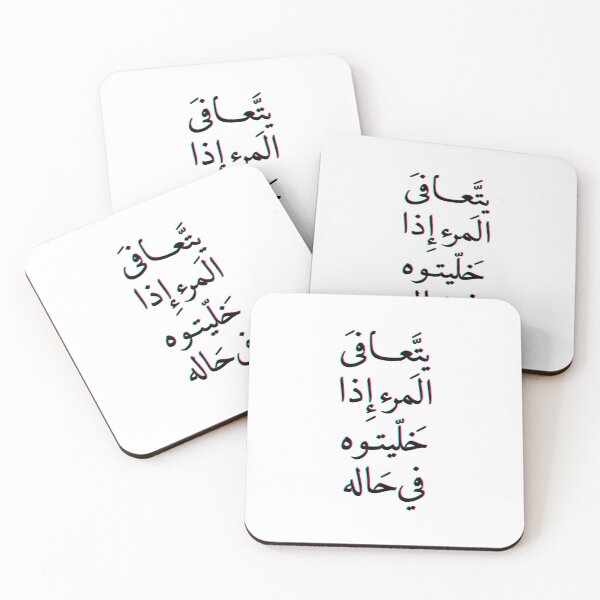 يتَّعافىَ
المَرء إذا
يتَّعافىَ
المَرء إِذا
خَلّيتوه
يتَّعافىَ
المَرء إِذا
خَلّيتوه
حَاله
يتَّعافىَ
المَرء إِذا
خَلّيتوه
في حَاله